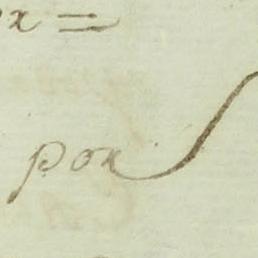 ox =
pox